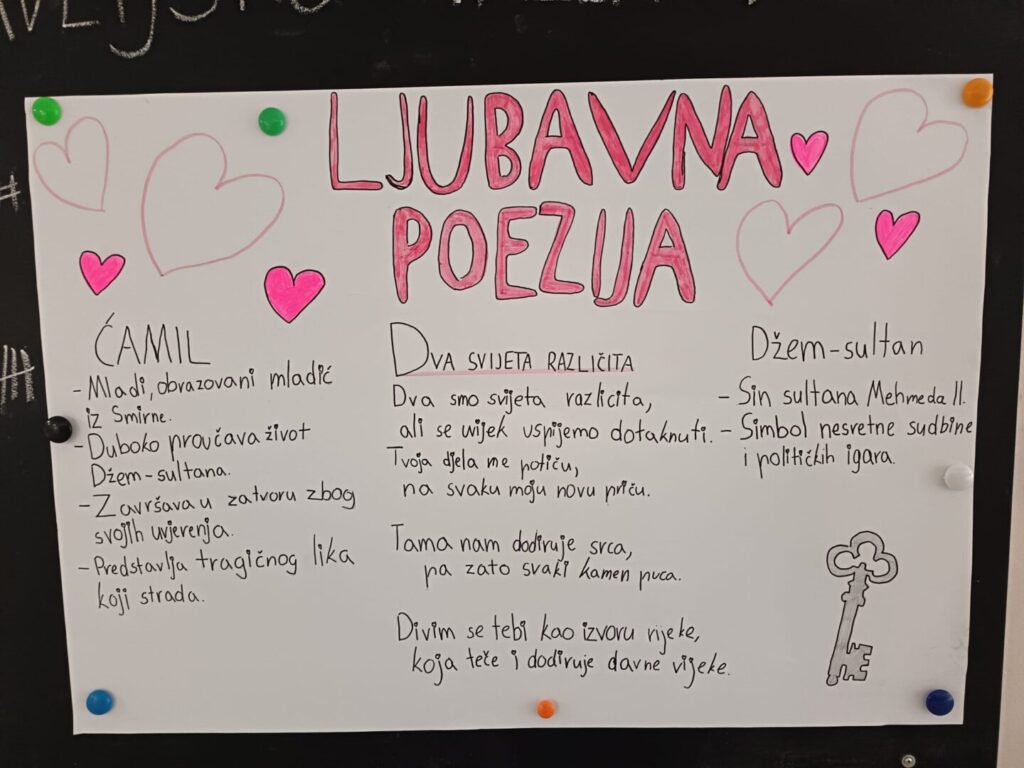 LJUBAVNA
POEZIJA
ĆAMIL
- Mladi, obrazovani mladić
iz Smirne.
- Duboko proučava život
Džem-sultana.
- Završava u zatvoru zbog
svojih uvjerenja.
- Predstavlja tragičnog lika
koji strada.
DVA SVIJETA RAZLIČITA
Dva smo svijeta razlicita,
ali se uvijek uspijemo dotaknuti.
Tvoja djela me potiču,
na svaku moju novu priču.
Tama nam dodiruje srca,
pa zato svaki kamen puca.
Divim se tebi kao izvoru rijeke,
koja teče i dodiruje davne vijeke.
Džem-sultan
- Sin sultana Mehmeda II.
- Simbol nesretne sudbine
i političkih igara.